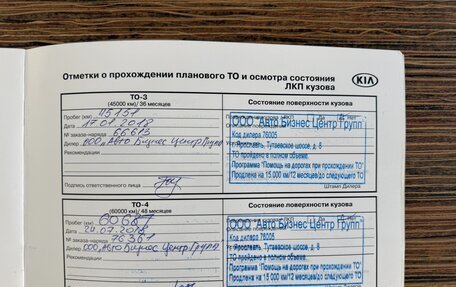 Отметки о прохождении планового ТО и осмотра состояния
ЛКП кузова
KIA
ТО-3
(45000 км)/ 36 месяцев
Состояние поверхности кузова
Пробег (км) 45151
Дата 17.01.2018
№ заказа-наряда 66613
Дилер ООО "Авто Бизнес Центр Групп"
Рекомендации
Подпись ответственного лица
ООО "Авто Бизнес Центр Групп"
Код дилера 76005
Ярославль, Тутаевское шоссе, д. 8
ТО пройдено в полном объеме.
Программа "Помощь на дорогах при прохождении ТО"
Продлена на 15 000 км/12 месяцев/до следующего ТО
Штамп Дилера
ТО-4
(60000 км)/ 48 месяцев
Состояние поверхности кузова
Пробег (км)
Дата 24.07.2018
№ заказа-наряда 76361
Дилер ООО "Авто Бизнес Центр Групп"
Рекомендации
ООО "Авто Бизнес Центр Групп"
Код дилера 76005
Ярославль, Тутаевское шоссе, д. 8
ТО пройдено в полном объеме.
Программа "Помощь на дорогах при прохождении ТО"
Продлена на 15 000 км/12 месяцев/до следующего ТО